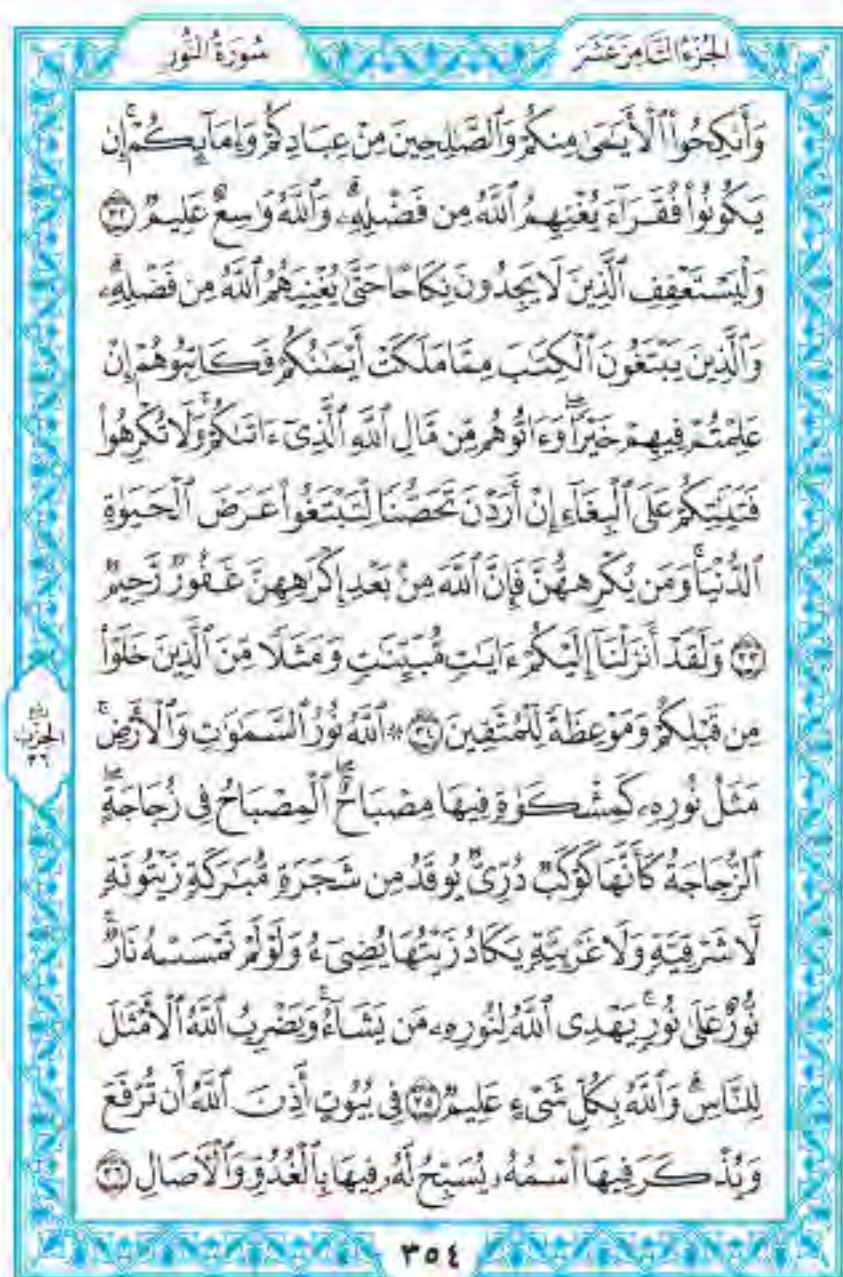 الجزء الثامن عشر
سورة النور
وَأَنكِحُوا۟ ٱلْأَيَـٰمَىٰ مِنكُمْ وَٱلصَّـٰلِحِينَ مِنْ عِبَادِكُمْ وَإِمَآئِكُمْ ۚ إِن
يَكُونُوا۟ فُقَرَآءَ يُغْنِهِمُ ٱللَّهُ مِن فَضْلِهِۦ ۗ وَٱللَّهُ وَٰسِعٌ عَلِيمٌ ٣٢
وَلْيَسْتَعْفِفِ ٱلَّذِينَ لَا يَجِدُونَ نِكَاحًا حَتَّىٰ يُغْنِيَهُمُ ٱللَّهُ مِن فَضْلِهِۦ ۗ
وَٱلَّذِينَ يَبْتَغُونَ ٱلْكِتَـٰبَ مِمَّا مَلَكَتْ أَيْمَـٰنُكُمْ فَكَاتِبُوهُمْ إِنْ
عَلِمْتُمْ فِيهِمْ خَيْرًا ۖ وَءَاتُوهُم مِّن مَّالِ ٱللَّهِ ٱلَّذِىٓ ءَاتَىٰكُمْ ۚ وَلَا تُكْرِهُوا۟
فَتَيَـٰتِكُمْ عَلَى ٱلْبِغَآءِ إِنْ أَرَدْنَ تَحَصُّنًا لِّتَبْتَغُوا۟ عَرَضَ ٱلْحَيَوٰةِ
ٱلدُّنْيَا ۚ وَمَن يُكْرِههُّنَّ فَإِنَّ ٱللَّهَ مِنۢ بَعْدِ إِكْرَٰهِهِنَّ غَفُورٌ رَّحِيمٌ
٣٣ وَلَقَدْ أَنزَلْنَآ إِلَيْكُمْ ءَايَـٰتٍ مُّبَيِّنَـٰتٍ وَمَثَلًا مِّنَ ٱلَّذِينَ خَلَوْا۟
مِن قَبْلِكُمْ وَمَوْعِظَةً لِّلْمُتَّقِينَ ٣٤ ۞ ٱللَّهُ نُورُ ٱلسَّمَـٰوَٰتِ وَٱلْأَرْضِ ۚ
مَثَلُ نُورِهِۦ كَمِشْكَوٰةٍ فِيهَا مِصْبَاحٌ ۖ ٱلْمِصْبَاحُ فِى زُجَاجَةٍ ۖ
ٱلزُّجَاجَةُ كَأَنَّهَا كَوْكَبٌ دُرِّىٌّ يُوقَدُ مِن شَجَرَةٍ مُّبَـٰرَكَةٍ زَيْتُونَةٍ
لَّا شَرْقِيَّةٍ وَلَا غَرْبِيَّةٍ يَكَادُ زَيْتُهَا يُضِىٓءُ وَلَوْ لَمْ تَمْسَسْهُ نَارٌ ۚ
نُّورٌ عَلَىٰ نُورٍ ۗ يَهْدِى ٱللَّهُ لِنُورِهِۦ مَن يَشَآءُ ۚ وَيَضْرِبُ ٱللَّهُ ٱلْأَمْثَـٰلَ
لِلنَّاسِ ۗ وَٱللَّهُ بِكُلِّ شَىْءٍ عَلِيمٌ ٣٥ فِى بُيُوتٍ أَذِنَ ٱللَّهُ أَن تُرْفَعَ
وَيُذْكَرَ فِيهَا ٱسْمُهُۥ يُسَبِّحُ لَهُۥ فِيهَا بِٱلْغُدُوِّ وَٱلْـَٔاصَالِ ٣٦
الحزب
٣٦
٣٥٤